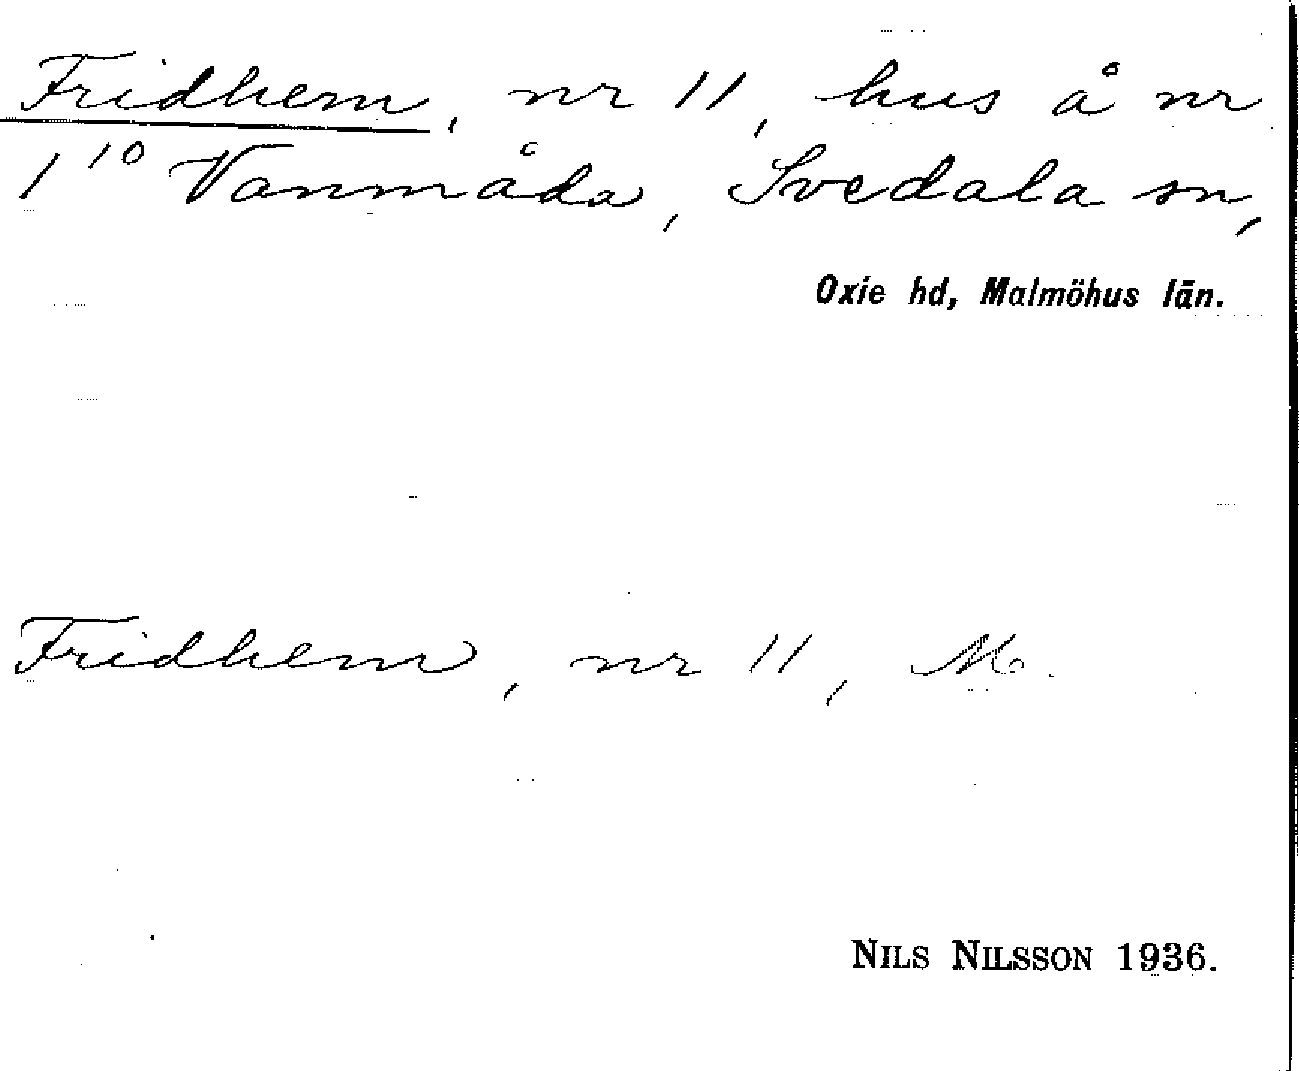 Fridhem, nr 11, hus å nr
1¹⁰ Vanmåda, Svedala sn,
Oxie hd, Malmöhus län.
Fridhem, nr 11, M.
NILS NILSSON 1936.